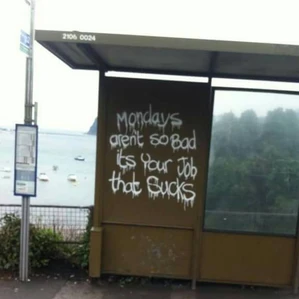 2106 0024
Mondays
aren't so Bad
its Your Job
that Sucks